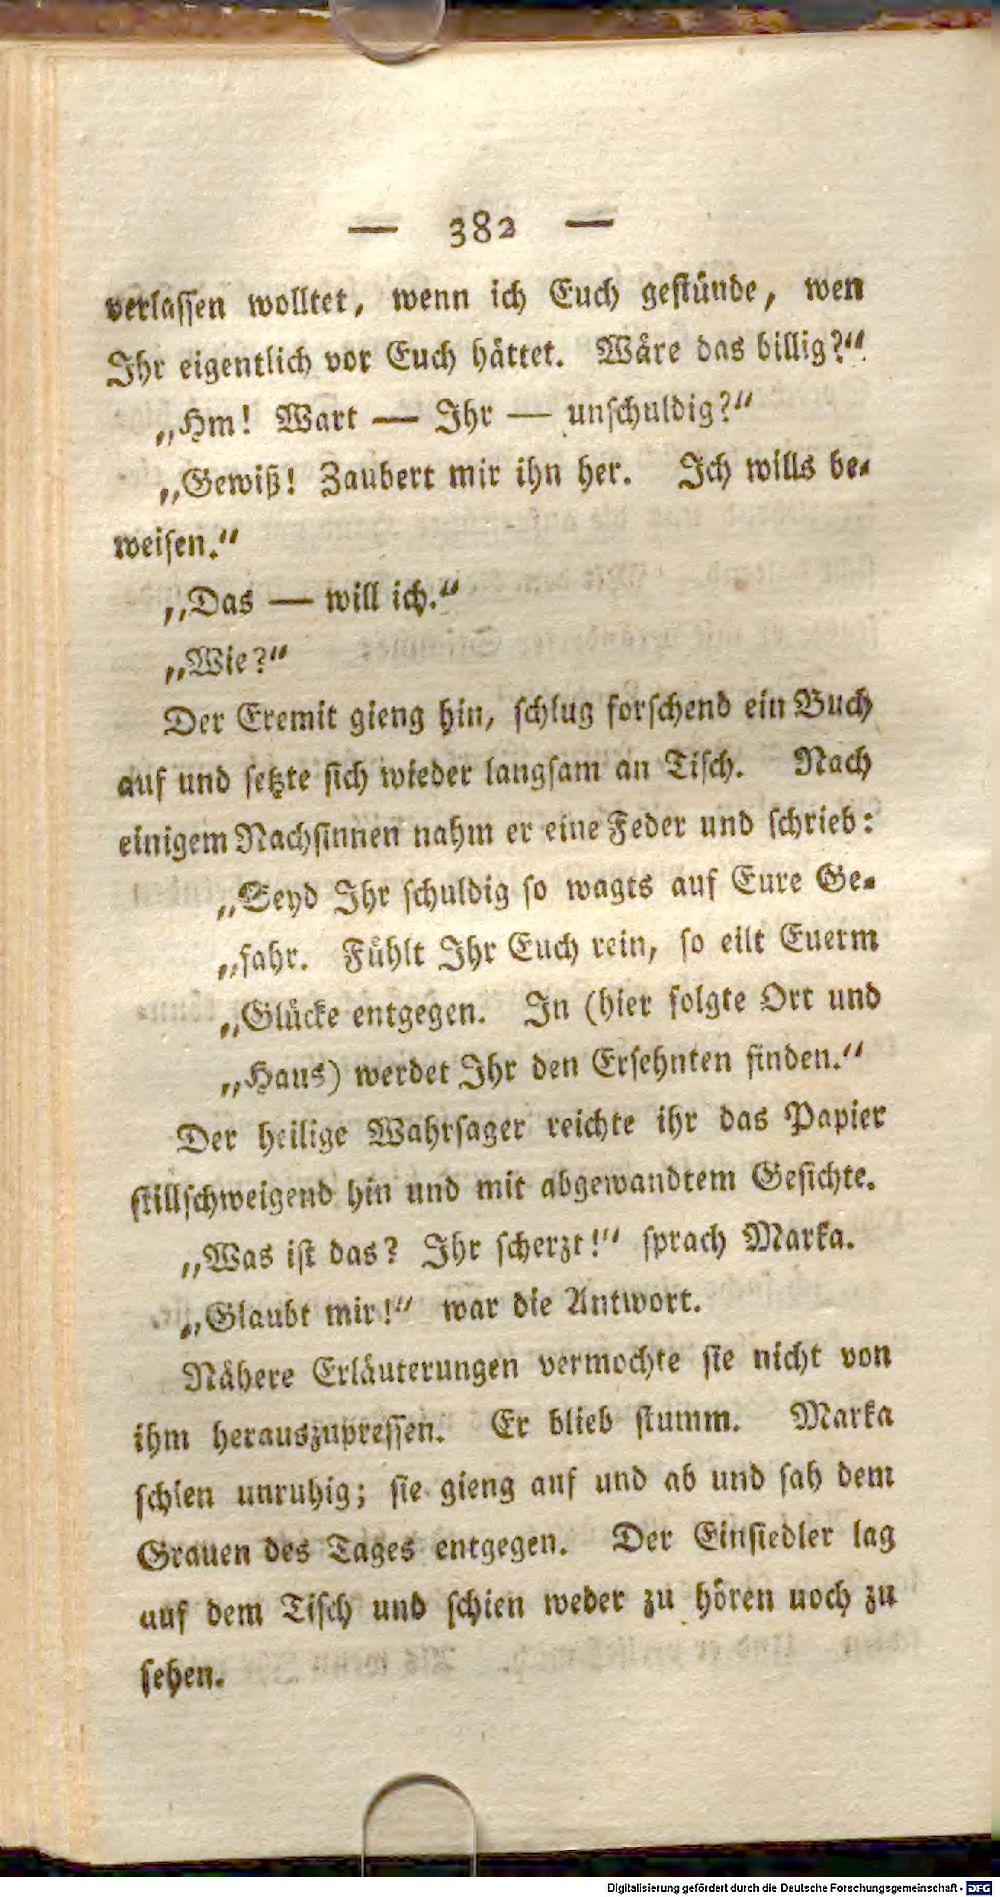 — 382 —
verlassen wolltet, wenn ich Euch gestünde, wen
Ihr eigentlich vor Euch hättet. Wäre das billig?“
„Hm! Wart — Ihr — unschuldig?“
„Gewiß! Zaubert mir ihn her. Ich wills be-
weisen.“
„Das — will ich.“
„Wie?“
Der Eremit gieng hin, schlug forschend ein Buch
auf und setzte sich wieder langsam an Tisch. Nach
einigem Nachsinnen nahm er eine Feder und schrieb:
„Seyd Ihr schuldig so wagts auf Eure Ge-
„fahr. Fühlt Ihr Euch rein, so eilt Euerm
„Glücke entgegen. In (hier folgte Ort und
„Haus) werdet Ihr den Ersehnten finden.“
Der heilige Wahrsager reichte ihr das Papier
stillschweigend hin und mit abgewandtem Gesichte.
„Was ist das? Ihr scherzt!“ sprach Marka.
„Glaubt mir!“ war die Antwort.
Nähere Erläuterungen vermochte sie nicht von
ihm herauszupressen. Er blieb stumm. Marka
schien unruhig; sie gieng auf und ab und sah dem
Grauen des Tages entgegen. Der Einsiedler lag
auf dem Tisch und schien weder zu hören uoch zu
sehen.
Digitalisierung gefördert durch die Deutsche Forschungsgemeinschaft - DFG